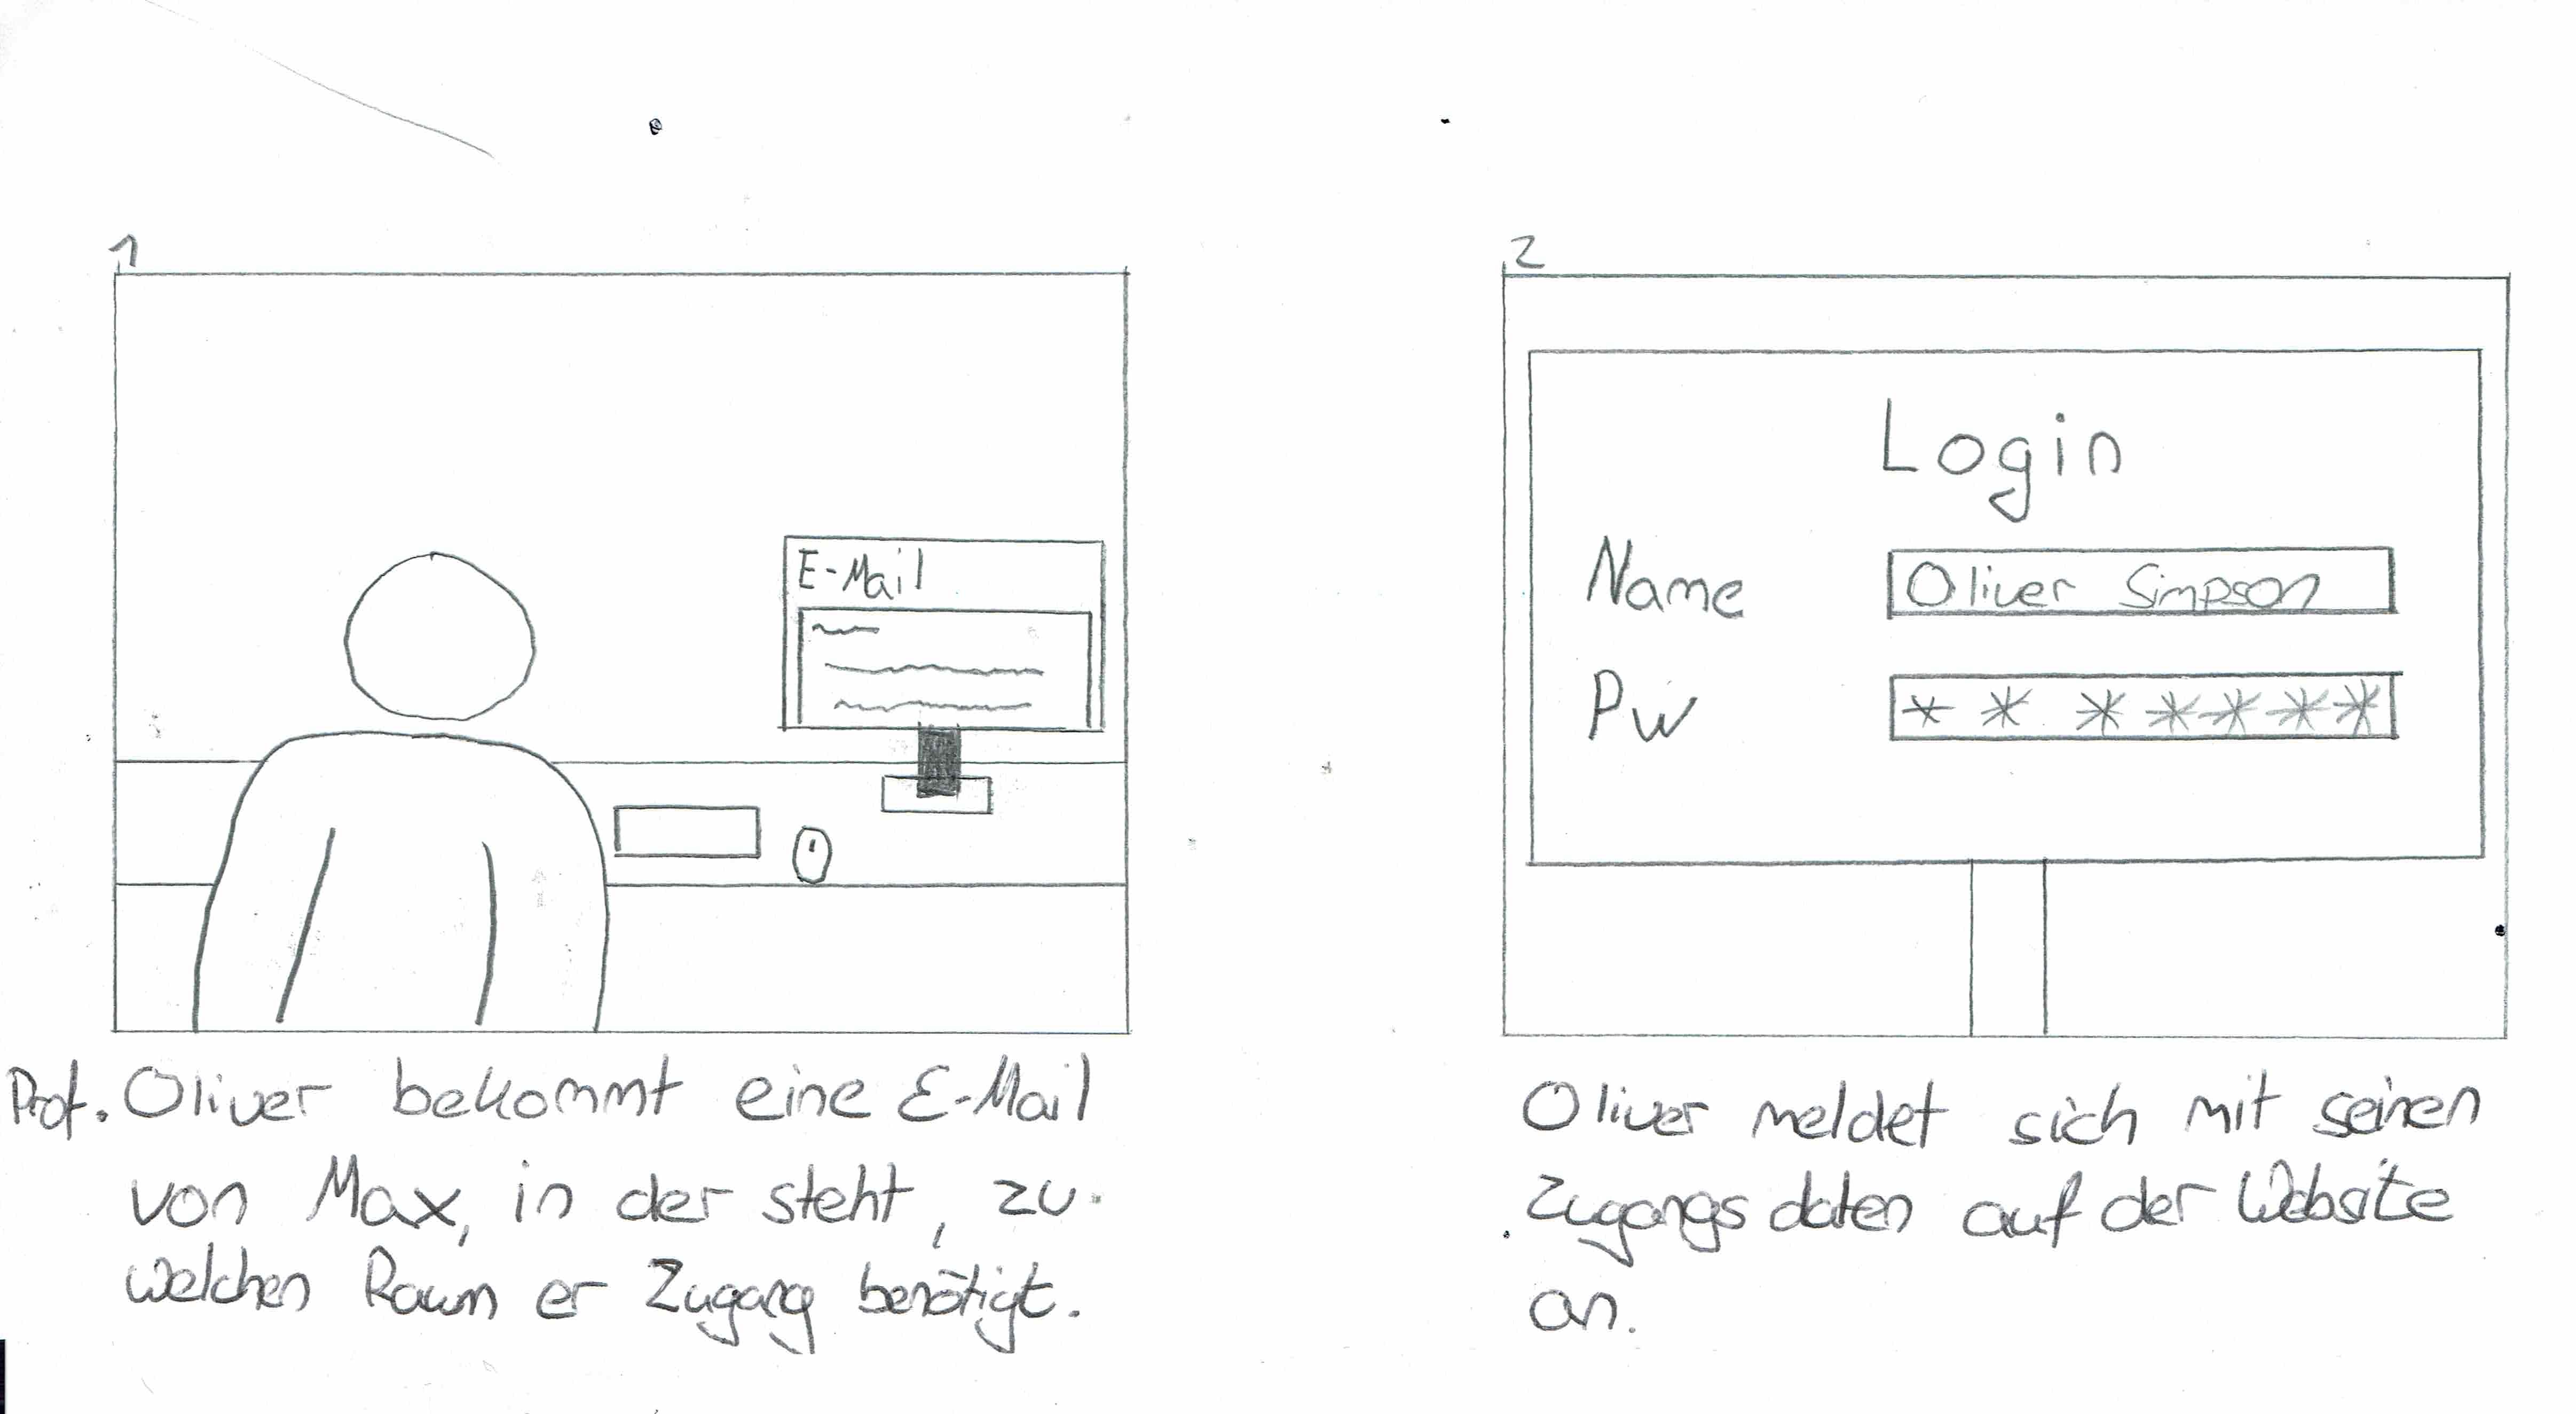 1
E-Mail
Prof. Oliver bekommt eine E-Mail
von Max, in der steht, zu
welchen Raum er Zugang benötigt.
2
Login
Name Oliver Simpson
Pw *******
Oliver meldet sich mit seinen
Zugangsdaten auf der Website
an.